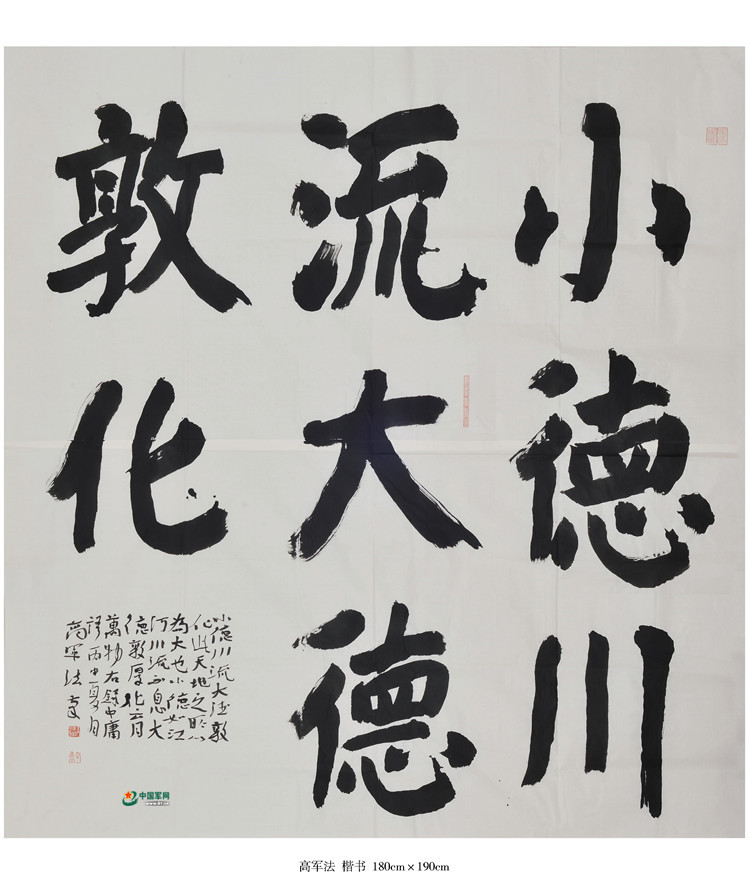 小德川
流大德
敦化
小德川流大德敦
化此天地之所以
為大也小德如江
河川流不息大
德敦厚化育
萬物右録中庸
语丙申夏月
高军法
中国军网
高军法 楷书 180cm×190cm